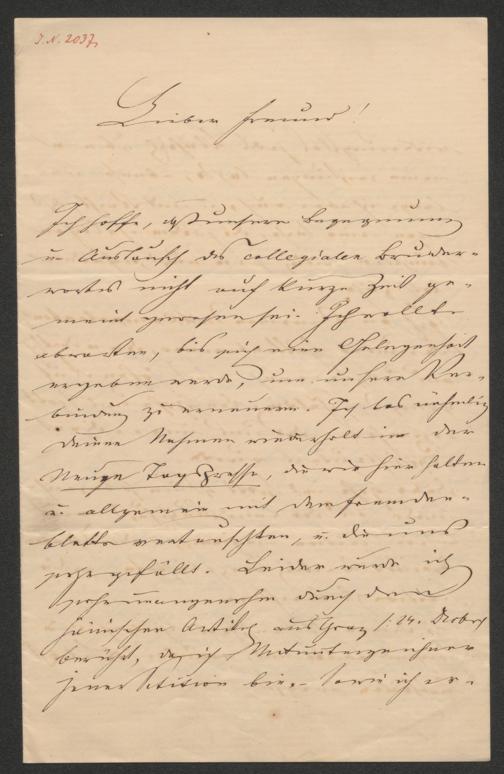 J. N. 2037
Lieber Freund!
Ich hoffe, daß unsere Begegnung
u. Austausch des collegialen Bruder-
wortes nicht auf kurze Zeit ge-
meint gewesen sei. Ich wollte
abwarten, bis sich eine Gelegenheit
ergeben werde, um unsere Ver-
bindung zu erneuern. Ich las nehmlich
Deinen Nahmen wiederholt in der
Neuen Tagspresse, die wir hier halten
u. allgemein mit dem Fremden-
blatte vertauschten, u. die uns
sehr gefällt. Leider wurde ich
sehr unangenehm durch den
hämischen Artikel aus Graz /: 24.
berührt, da ich Mitunterzeichner
jener Petition bin. Sowie ich er-